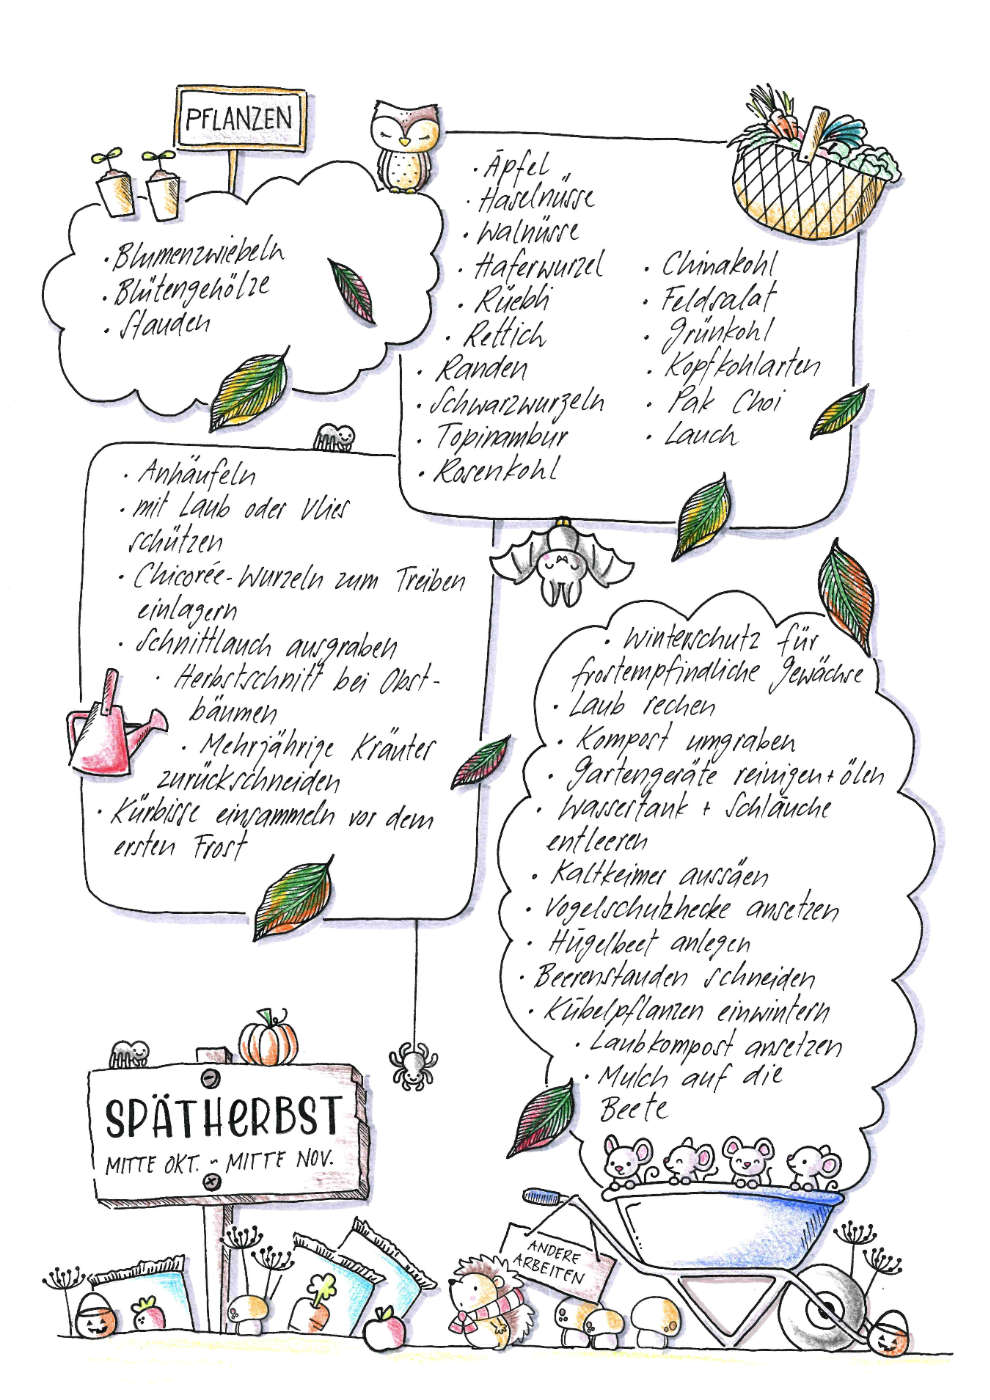 PFLANZEN
· Blumenzwiebeln
· Blütengehölze
· Stauden
· Äpfel
· Haselnüsse
· Walnüsse
· Haferwurzel
· Rüebli
· Rettich
· Randen
· Schwarzwurzeln
· Topinambur
· Rosenkohl
· Chinakohl
· Feldsalat
· Grünkohl
· Kopfkohlarten
· Pak Choi
· Lauch
· Anhäufeln
· mit Laub oder Vlies
schützen
· Chicorée-Wurzeln zum Treiben
einlagern
· Schnittlauch ausgraben
· Herbstschnitt bei Obst-
bäumen
· Mehrjährige Kräuter
zurückschneiden
· Kürbisse einsammeln vor dem
ersten Frost
· Winterschutz für
frostempfindliche Gewächse
· Laub rechen
· Kompost umgraben
· Gartengeräte reinigen + ölen
· Wassertank + Schläuche
entleeren
· Kaltkeimer aussäen
· Vogelschutzhecke ansetzen
· Hügelbeet anlegen
· Beerenstauden schneiden
· Kübelpflanzen einwintern
· Laubkompost ansetzen
· Mulch auf die
Beete
SPÄTHERBST
MITTE OKT. ~ MITTE NOV.
ANDERE
ARBEITEN